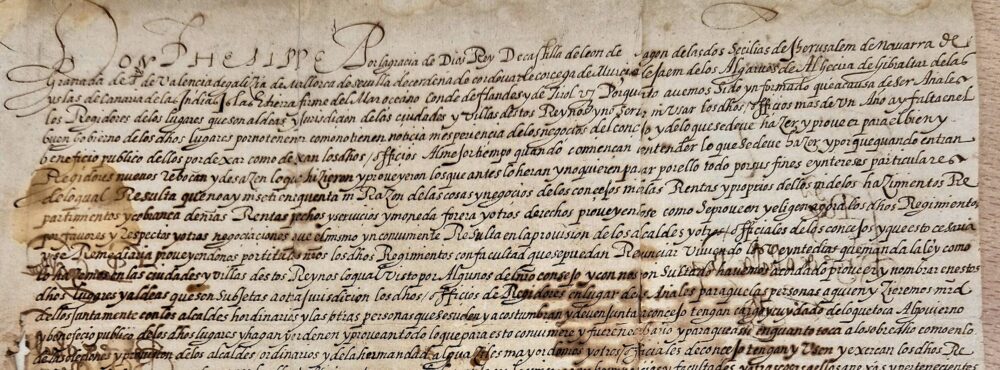 DON PHELIPPE Por la gracia de Dios Rey De castilla de leon de aragon de las dos Secilias de Jherusalem de Navarra de
Granada de Toledo de Valencia de galizia de Mallorca de sevilla de cerdeña de cordova de corcega de Murcia de Jaem de los Algarves de Algecira de Gibraltar de las
yslas de Canaria de las Indias yslas e tierra firme del Mar oceano Conde de flandes y de tirol &c Por quanto avemos sido ynformado que a causa de ser Anales
los Regidores de los lugares que son aldeas y Jurisdicion de las ciudades y villas destos Reynos y no servir ni usar los dhos officios mas de un Año ay falta en el
buen gobierno de los dhos lugares por no tener como no tienen noticia ni esperiencia de los negocios del concejo y de lo que se deve hazer y proveer para el bien y
beneficio publico dellos por dexar como dexan los dhos officios Al mejor tiempo quando comencan a entender lo que se deve hazer y porque quando entran
Regidores nuevos rebocan y desazen lo que hizieron y proveyeron los que antes lo heran y no quieren pasar por ello todo por sus fines e yntereses particulares
de lo qual Resulta que no ay ni se tiene quenta ni Razon de las cosas y negocios de los concejos ni de las Rentas y propios dellos ni de los hazimientos Re
partimientos y cobranca de ñras Rentas pechos y servicios y moneda forera y otros derechos proveyendose como se proveen y eligen agora los dhos Regimientos
por favores y Respectos y otras negociaciones que el mismo ynconveniente Resulta en la provision de los alcaldes y otros officiales de los concejos y que esto cesaria
y se Remediaria proveyendo nos por titulos nros los dhos Regimientos con facultad que se puedan Renunciar Viviendo los Veynte dias que manda la ley como
lo hazemos en las ciudades y villas destos Reynos lo qual Visto por Algunos del nro consejo y con nos consultado havemos acordado proveer y nombrar en estos
dhos lugares y aldeas que son subjetas a otra jurisdicion los dhos officios de Regidores en lugar de los Anales para que las personas a quien hizieremos mrd
dellos juntamente con los alcaldes hordinarios y las otras personas que se suelen y acostumbran y deven juntar a concejo tengan cargo y cuydado de lo que toca Al govierno
y beneficio publico de los dhos lugares y hagan y ordenen y provean todo lo que para esto conviniere y fuere necesario y para que asi en quanto toca a lo sobredho como en lo
de las elecciones y provision de los alcaldes ordinarios y de la hermandad alguaziles mayordomos y otros officiales de concejo tengan y Usen y exercan los dhos Re